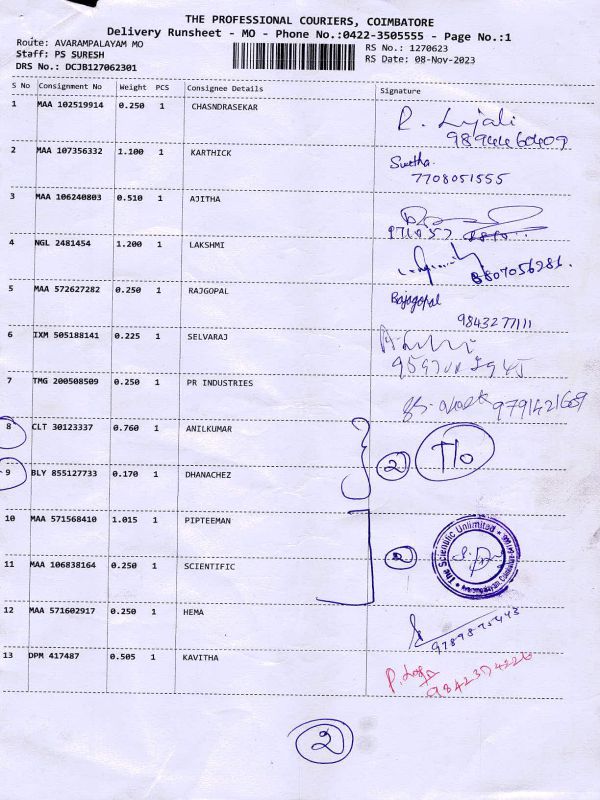 THE PROFESSIONAL COURIERS, COIMBATORE
Delivery Runsheet - MO - Phone No.:0422-3505555 - Page No.:1
Route: AVARAMPALAYAM MO RS No.: 1270623
Staff: PS SURESH RS Date: 08-Nov-2023
DRS No.: DCJB127062301
S No Consignment No Weight PCS Consignee Details Signature
1 MAA 102519914 0.250 1 CHASNDRASEKAR
9894460409
2 MAA 107356332 1.100 1 KARTHICK
7708051555
3 MAA 106240803 0.510 1 AJITHA
4 NGL 2481454 1.200 1 LAKSHMI
8807056286.
5 MAA 572627282 0.250 1 RAJGOPAL Rajagopal
9843277111
6 IXM 505188141 0.225 1 SELVARAJ
7 TMG 200508509 0.250 1 PR INDUSTRIES 9791421609
8 CLT 30123337 0.760 1 ANILKUMAR
2
9 BLY 855127733 0.170 1 DHANACHEZ
10 MAA 571568410 1.015 1 PIPTEEMAN
The Scientific Unlimited
2
11 MAA 106838164 0.250 1 SCIENTIFIC
12 MAA 571602917 0.250 1 HEMA
13 DPM 417487 0.505 1 KAVITHA
2